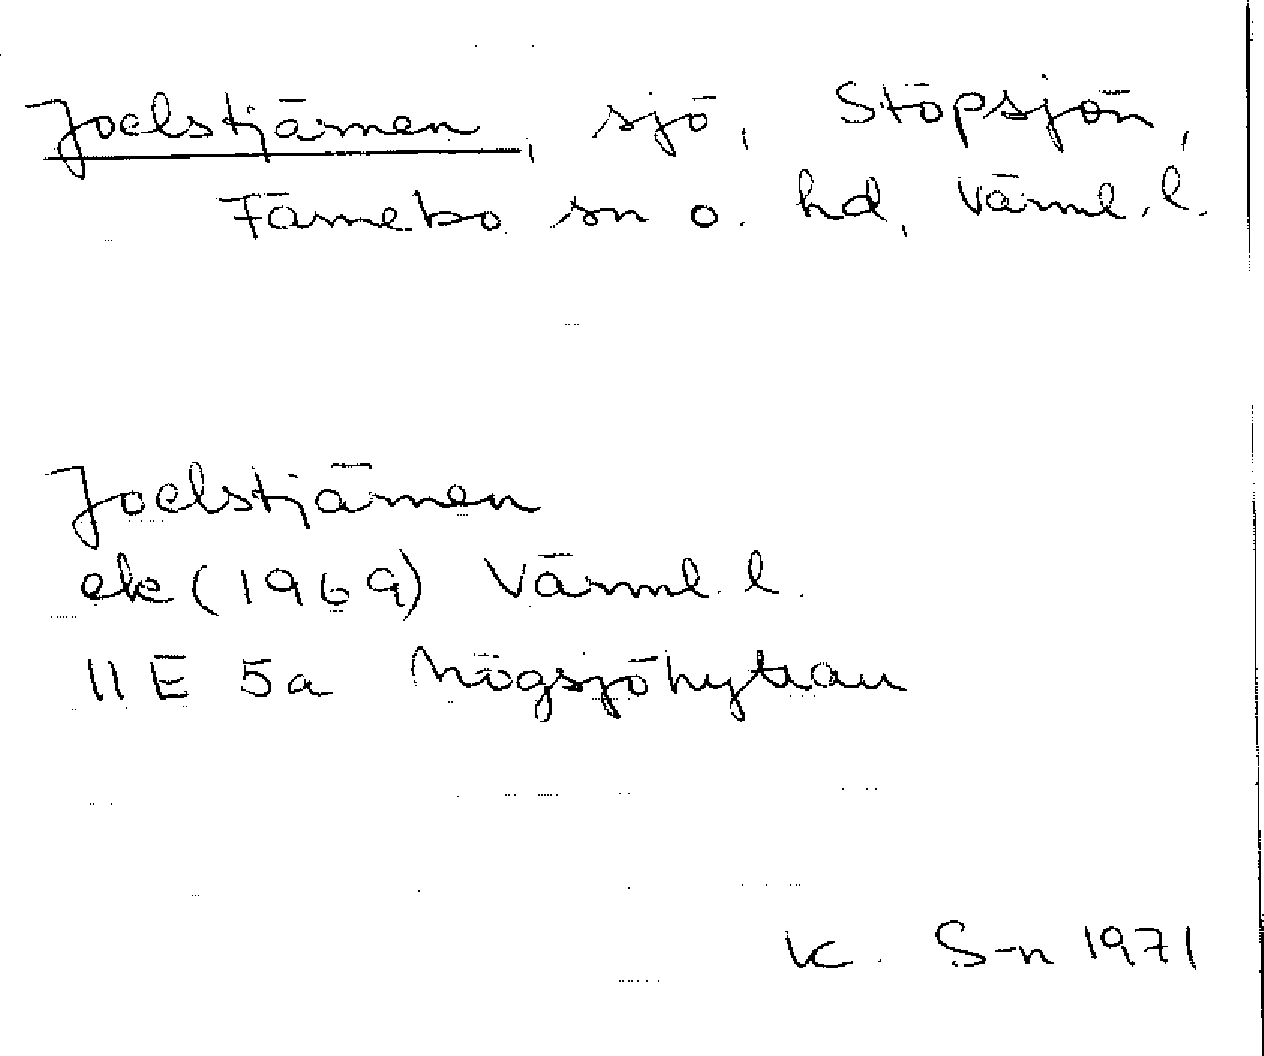 Joelstjärnen, sjö, Stöpsjön,
Färnebo sn o. hd, Värml. l.
Joelstjärnen
ek (1969) Värml. l.
11 E 5a Högsjöhyttan
K. S-n 1971